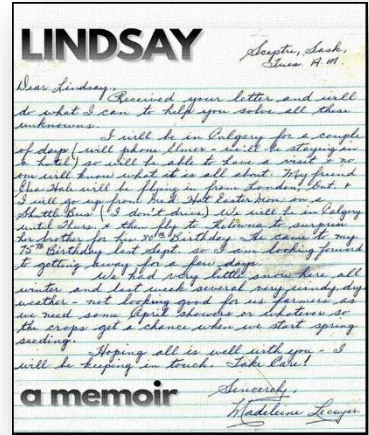 LINDSAY
Sceptre, Sask.
Tues. A.M.
Dear Lindsay;
Received your letter and will
do what I can to help you solve all these
unknowns.
I will be in Calgary for a couple
of days (will phone Elmer - will be staying in
a hotel) so will be able to have a visit & no
one will know what it is all about. My friend
Elva Hale will be flying in from London, Ont. &
I will go up from Med. Hat Easter Mon. on a
Shuttle Bus (I don't drive) We will be in Calgary
until Thurs. & then to Kelowna to surprise
her brother for his 90th Birthday - He came to my
75th Birthday last Sept. so I am looking forward
to getting away for a few days.
We had very little snow here all
winter and last week several very windy dry
weather - not looking good for us farmers as
we need some April showers or whatever so
the crops get a chance when we start spring
seeding.
Hoping all is well with you - I
will be keeping in touch. Take Care!
Sincerely,
Madeleine Lecuyer
a memoir